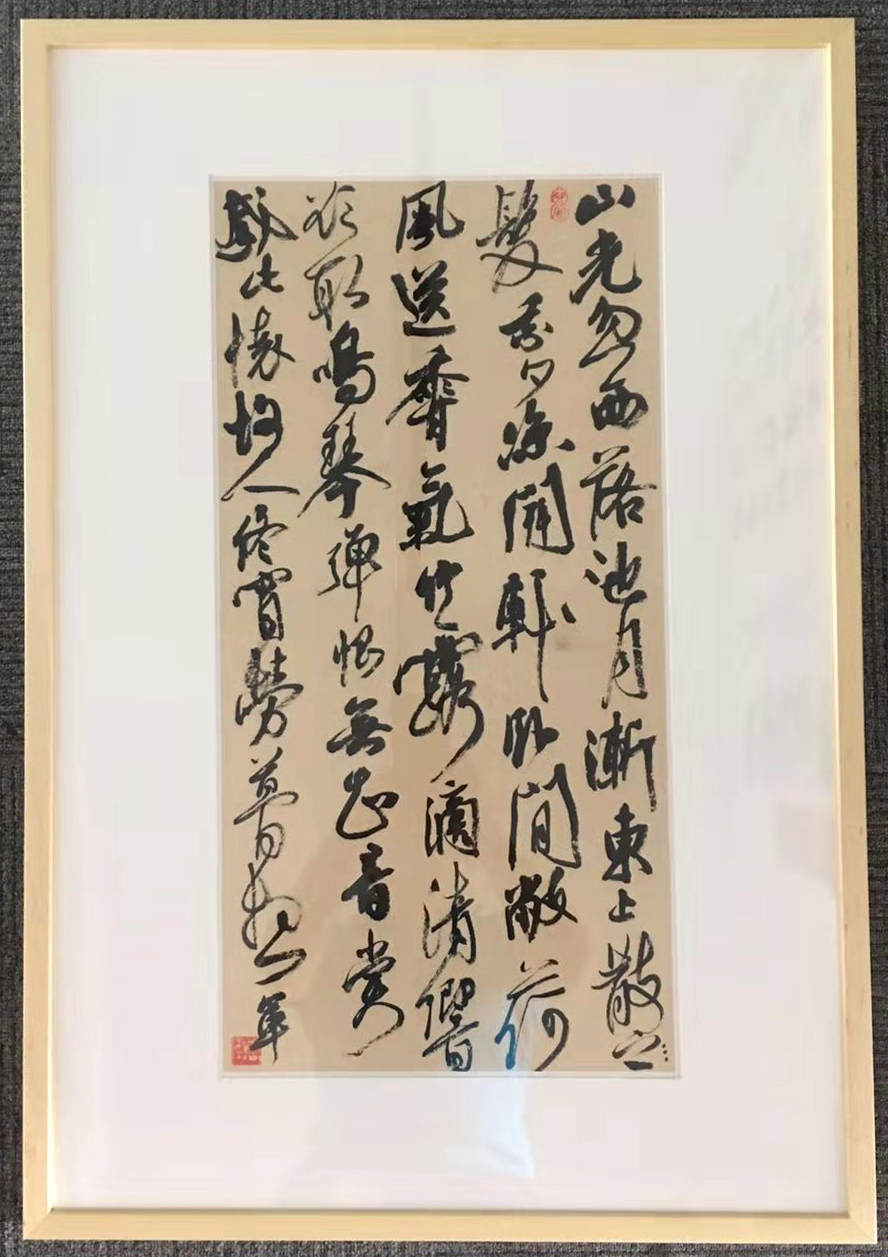 山光忽西落池月漸東上散
髮乘夕涼開軒臥閒敞荷
風送香氣竹露滴清響
欲取鳴琴彈恨無知音賞
感此懷故人終宵勞夢想